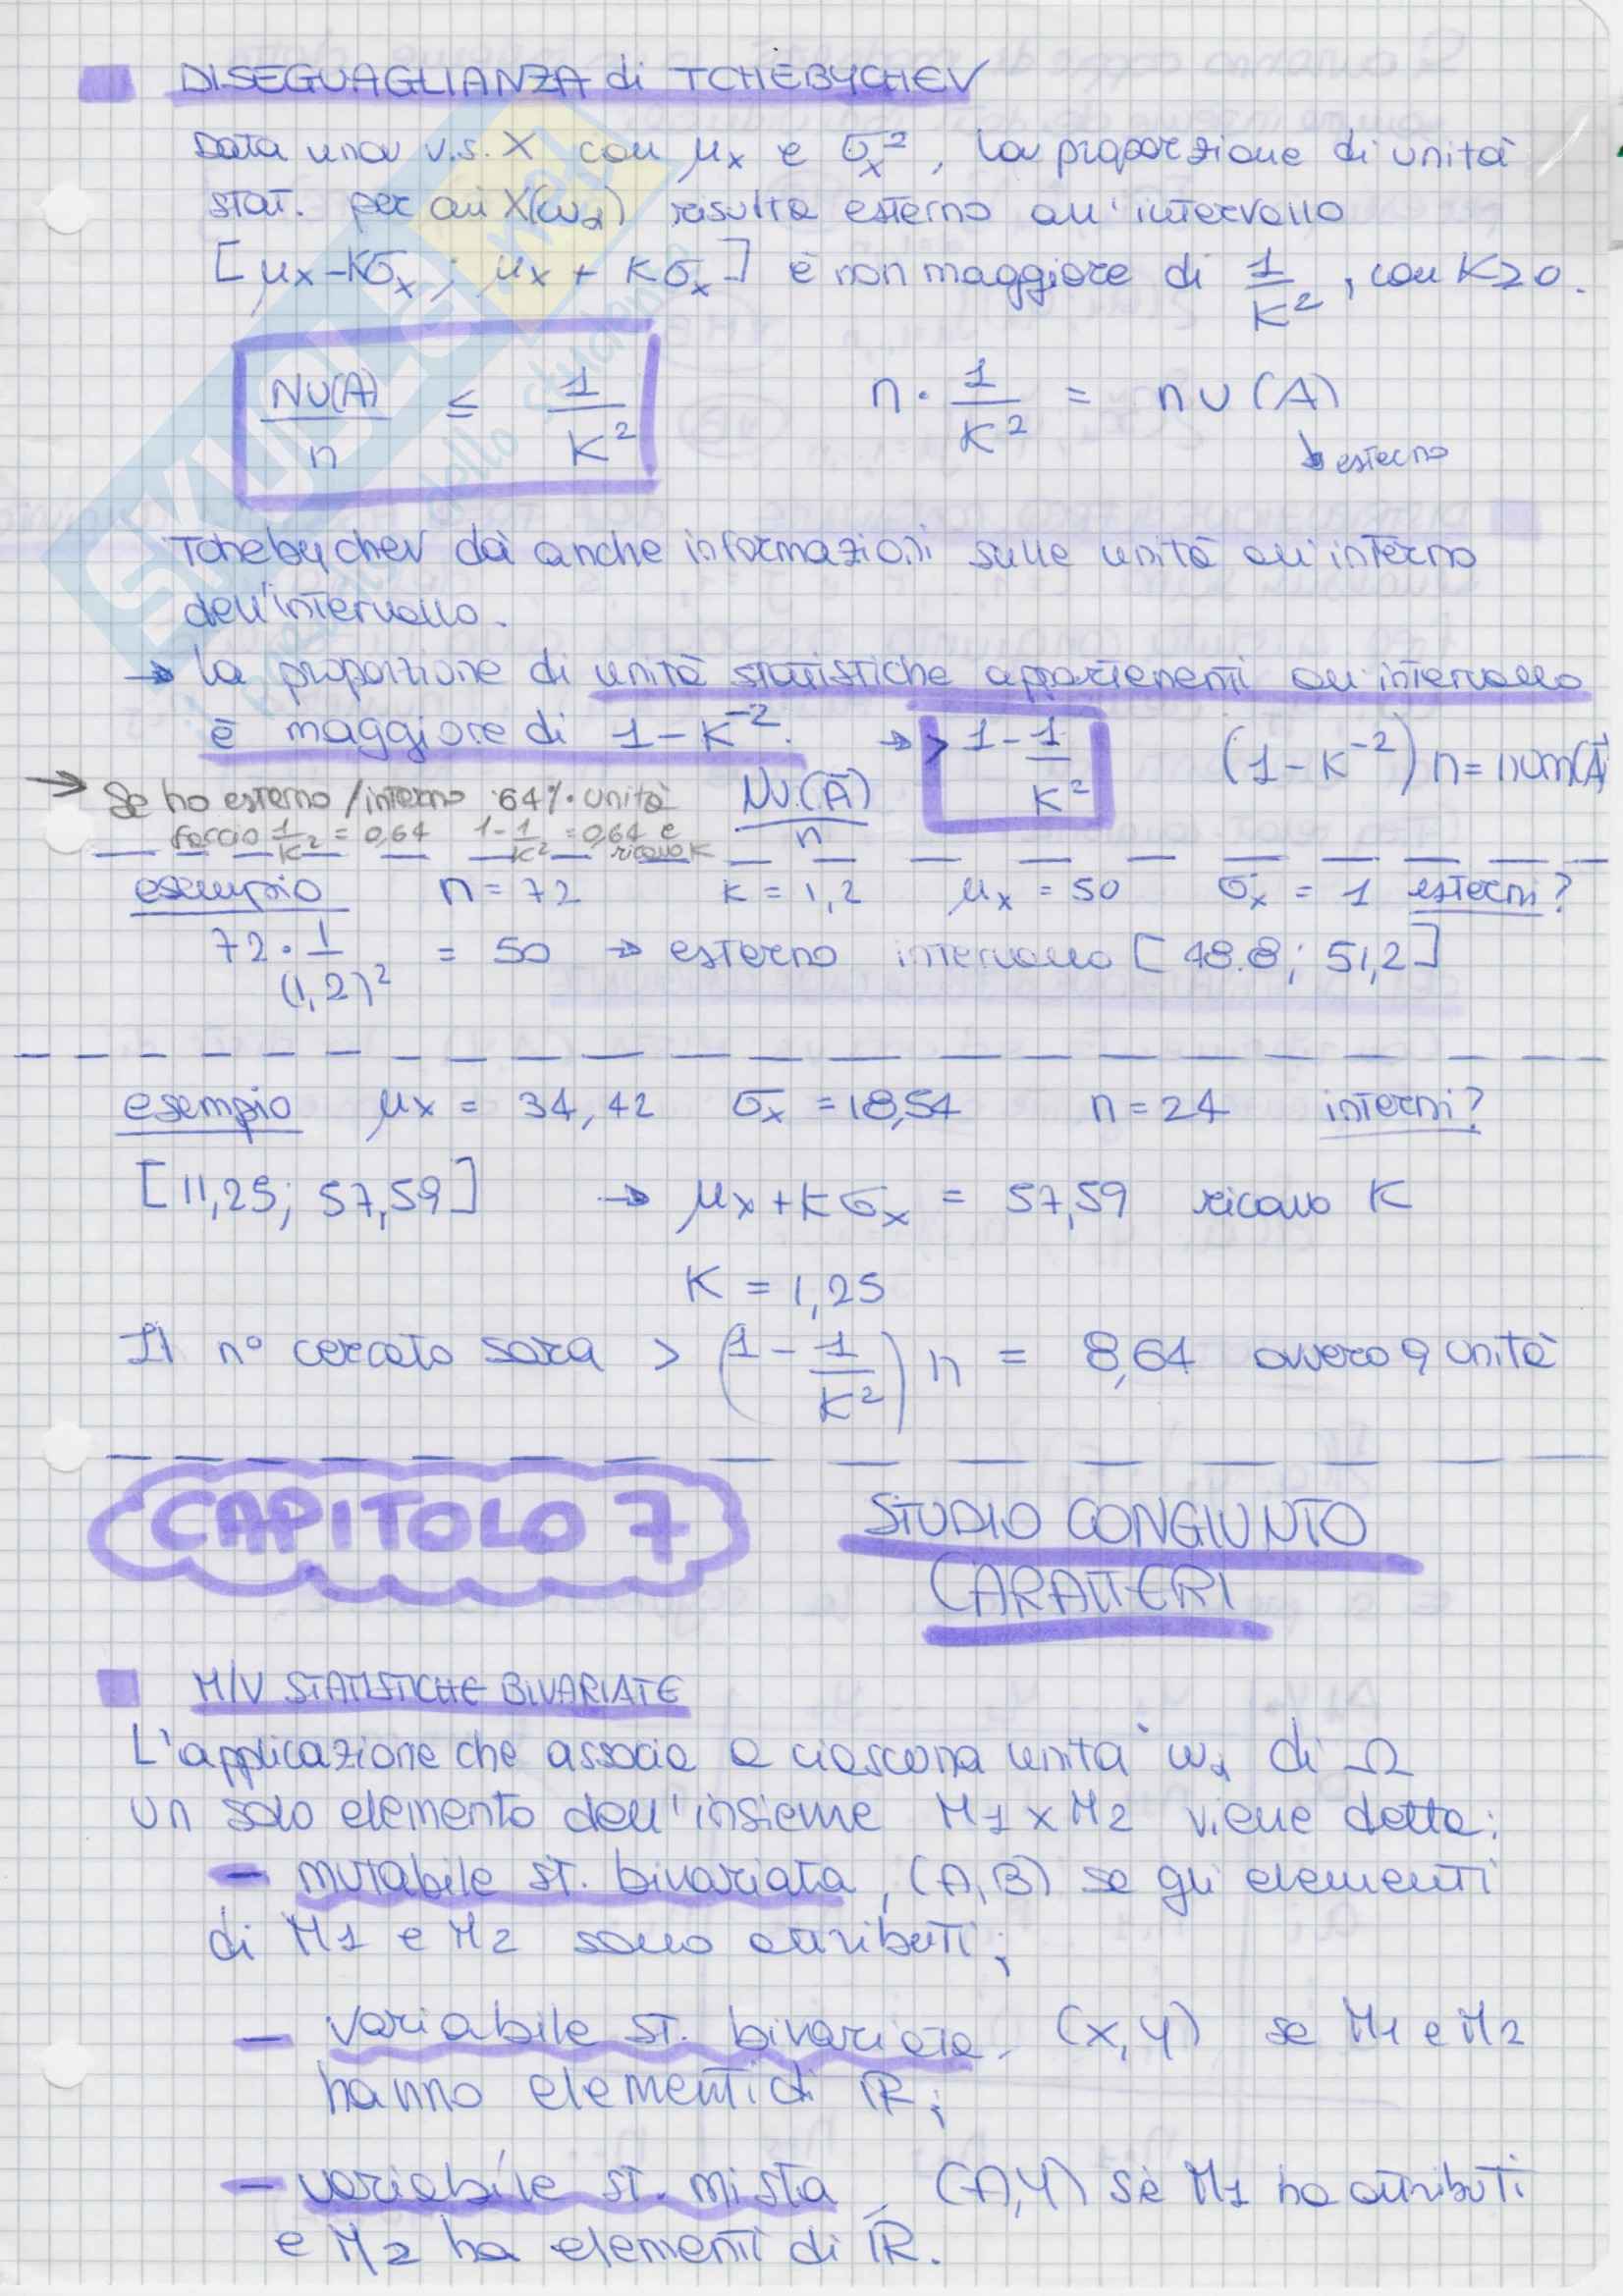 DISEGUAGLIANZA di TCHEBYCHEV
Data una v.s. X con μx e σx², la proporzione di unità
stat. per cui X(ωα) risulta esterno all'intervallo
[μx-Kσx; μx + Kσx] è non maggiore di 1/K², con K≥0.
NU(A)/n ≤ 1/K²    n · 1/K² = nU(A)
↳ esterno
Tchebychev dà anche informazioni sulle unità all'interno
dell'intervallo.
→ la proporzione di unità statistiche appartenenti all'intervallo
è maggiore di 1-K⁻². → > 1 - 1/K²    (1-K⁻²) n = num(Ā)
NU(Ā)/n
→ Se ho esterno/interno 64% unità
faccio 1/K² = 0,64  1-1/K² = 0,64 e ricavo K
esempio    n = 72    K = 1,2    μx = 50    σx = 1 esterni?
72 · 1/(1,2)² = 50 → esterno intervallo [48.8; 51,2]
esempio    μx = 34,42    σx = 18,54    n = 24    interni?
[11,25; 57,59] → μx + Kσx = 57,59 ricavo K
K = 1,25
Il n° cercato sarà > (1 - 1/K²) n = 8,64 ovvero 9 unità
CAPITOLO 7    STUDIO CONGIUNTO
CARATTERI
M/V STATISTICHE BIVARIATE
L'applicazione che associa a ciascuna unità ωα di Ω
un solo elemento dell'insieme M1 x M2 viene detta:
- mutabile st. bivariata, (A,B) se gli elementi
di M1 e M2 sono attributi;
- variabile st. bivariata, (X,Y) se M1 e M2
hanno elementi di ℝ;
- variabile st. mista, (A,Y) se M1 ha attributi
e M2 ha elementi di ℝ.
SKUOLA.net
dello studente